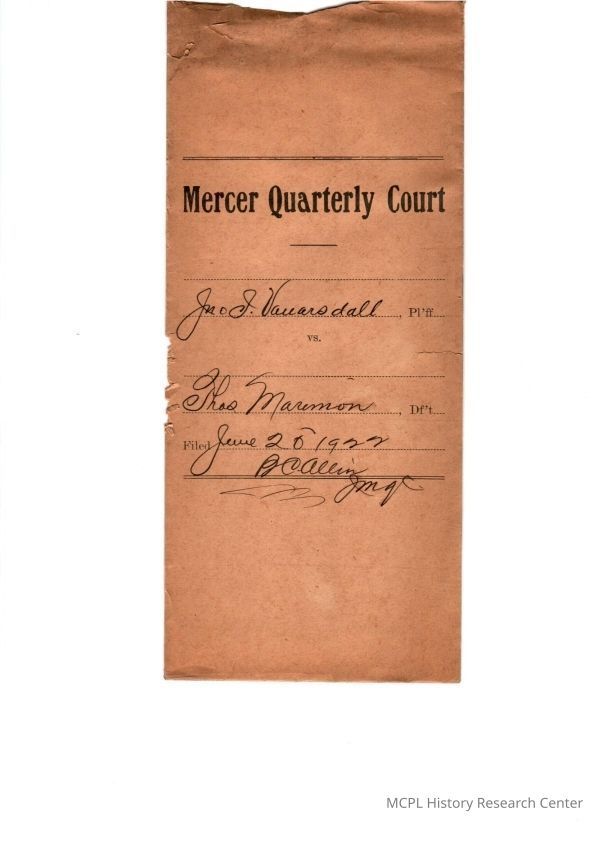 Mercer Quarterly Court
Jno I. Vanarsdall, Pl'ff.
vs.
Thos Maremon, Df't.
Filed June 26 1922
B C Allin
JMQC
MCPL History Research Center